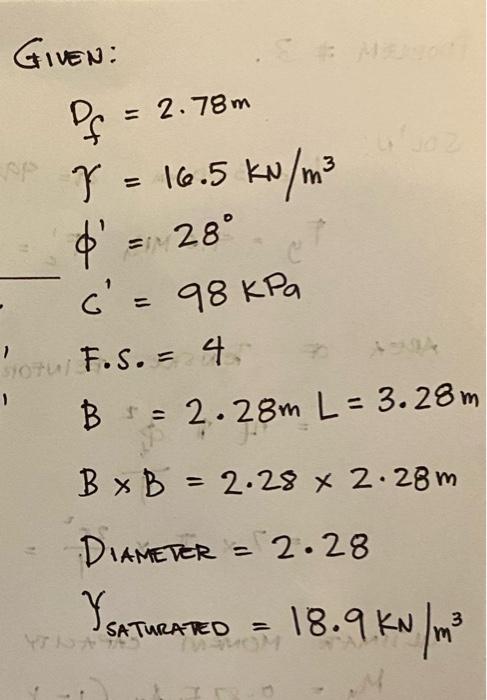 GIVEN:
Df = 2.78m
γ = 16.5 KN/m³
φ' = 28°
c' = 98 KPa
F.S. = 4
B = 2.28m L = 3.28m
B x B = 2.28 x 2.28m
DIAMETER = 2.28
γSATURATED = 18.9 KN/m³